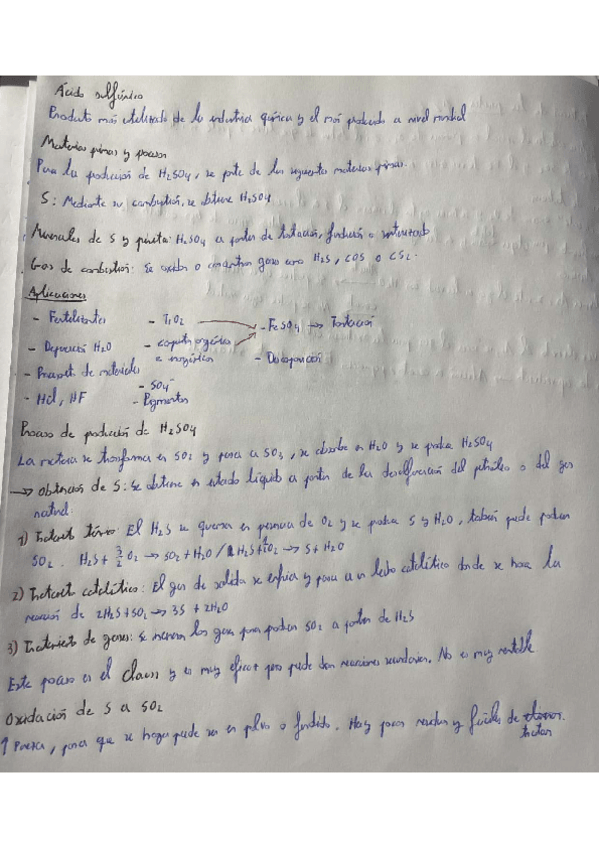 Ácido sulfúrico
Producto más utilizado de la industria química y el más producido a nivel mundial
Materias primas y procesos
Para la producción de H₂SO₄, se parte de las siguientes materias primas.
S: Mediante su combustión, se obtiene H₂SO₄
Minerales de S y pirita: H₂SO₄ a partir de tostación, fundición o sinterizado
Gas de combustión: Se oxidan o concentran gases como H₂S, COS o CS₂.
Aplicaciones
- Fertilizantes - TiO₂ - FeSO₄ → Tostación
- Depuración H₂O - compuestos orgánicos e inorgánicos
- de materiales - SO₄⁼
- HCl, HF - Pigmentos
Proceso de producción de H₂SO₄
La materia se transforma en SO₂ y pasa a SO₃, se absorbe en H₂O y se produce H₂SO₄
→ Obtención de S: Se obtiene en estado líquido a partir de la desulfuración del petróleo o del gas
natural.
1) Tratamiento térmico: El H₂S se quema en presencia de O₂ y se produce S y H₂O, también puede producir
SO₂. H₂S + 3/2 O₂ → SO₂ + H₂O / H₂S + ½O₂ → S + H₂O
2) Tratamiento catalítico: El gas de salida se enfría y pasa a un lecho catalítico donde se hace la
reacción de 2H₂S + SO₂ → 3S + 2H₂O
3) Tratamiento de gases: Se los gases para producir SO₂ a partir de H₂S
Este proceso es el Claus y es muy eficaz pero puede dar reacciones secundarias. No es muy rentable
Oxidación de S a SO₂
↑ Pureza, para que se haga puede ser en polvo o fundido. Hay pocos residuos y fáciles de
tratar